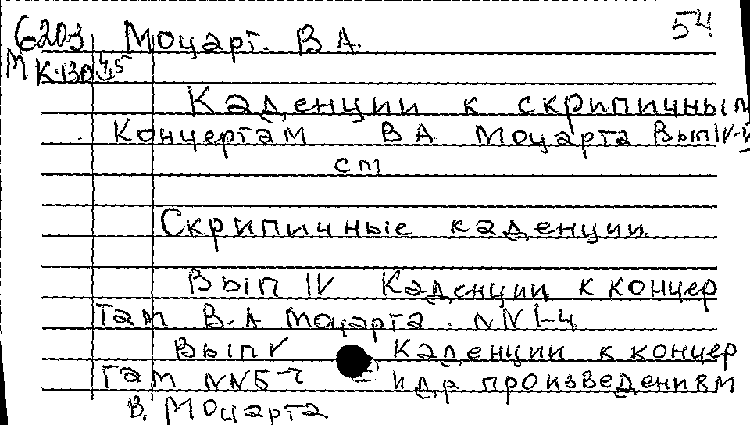 6203 Моцарт. В А. 54
М К-130 45
Каденции к скрипичным
Концертам В А Моцарта Вып IV-V
сп
Скрипичные каденции
Вып IV Каденции к концер
там В. А Моцарта. NN 1-4
Вып V Каденции к концер
там NN 5-7 и др произведениям
В. Моцарта